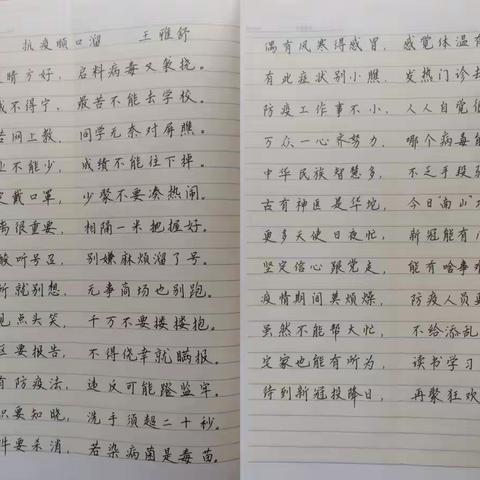 抗疫顺口溜 王雅舒
晴方好，启料病毒又教挠。
不得宁，最苦不能去学校。
网上教，同学无奈对屏瞧。
不能少，成绩不能往下掉。
戴口罩，少聚不要凑热闹。
很重要，相隔一米把握好。
听号召，别嫌麻烦溜了号。
所就别想，无事商场也别跑。
见点头笑，千万不要搂搂抱。
要报告，不得侥幸就瞒报。
有防疫法，违反可能蹬监牢。
识要知晓，洗手须超二十秒。
件要杀消，若染病菌是毒苗。
偶有风寒得感冒，感觉体温有
有此症状别小瞧，发热门诊去
防疫工作事不小，人人自觉很
万众一心齐努力，哪个病毒能
中华民族智慧多，不乏手段强
古有神医是华坨，今日南山
更多天使日夜忙，新冠能有
坚定信心跟党走，能有啥事
疫情期间莫烦燥，防疫人员
虽然不能帮大忙，不给添乱
定家也能有所为，读书学习
待到新冠投降日，再聚狂欢